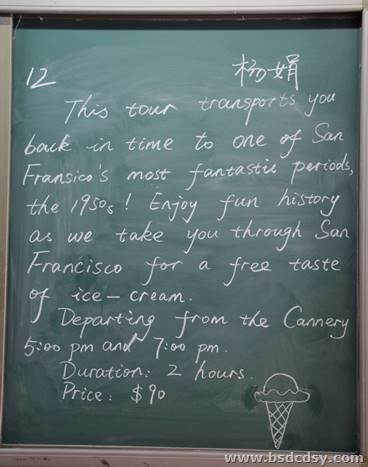 12 杨娟
This tour transports you
back in time to one of San
Fransico's most fantastic periods,
the 1950s! Enjoy fun history
as we take you through San
Francisco for a free taste
of ice-cream.
Departing from the Cannery
5:00 pm and 7:00 pm.
Duration: 2 hours.
Price: $90
www.bsdcdsy.com